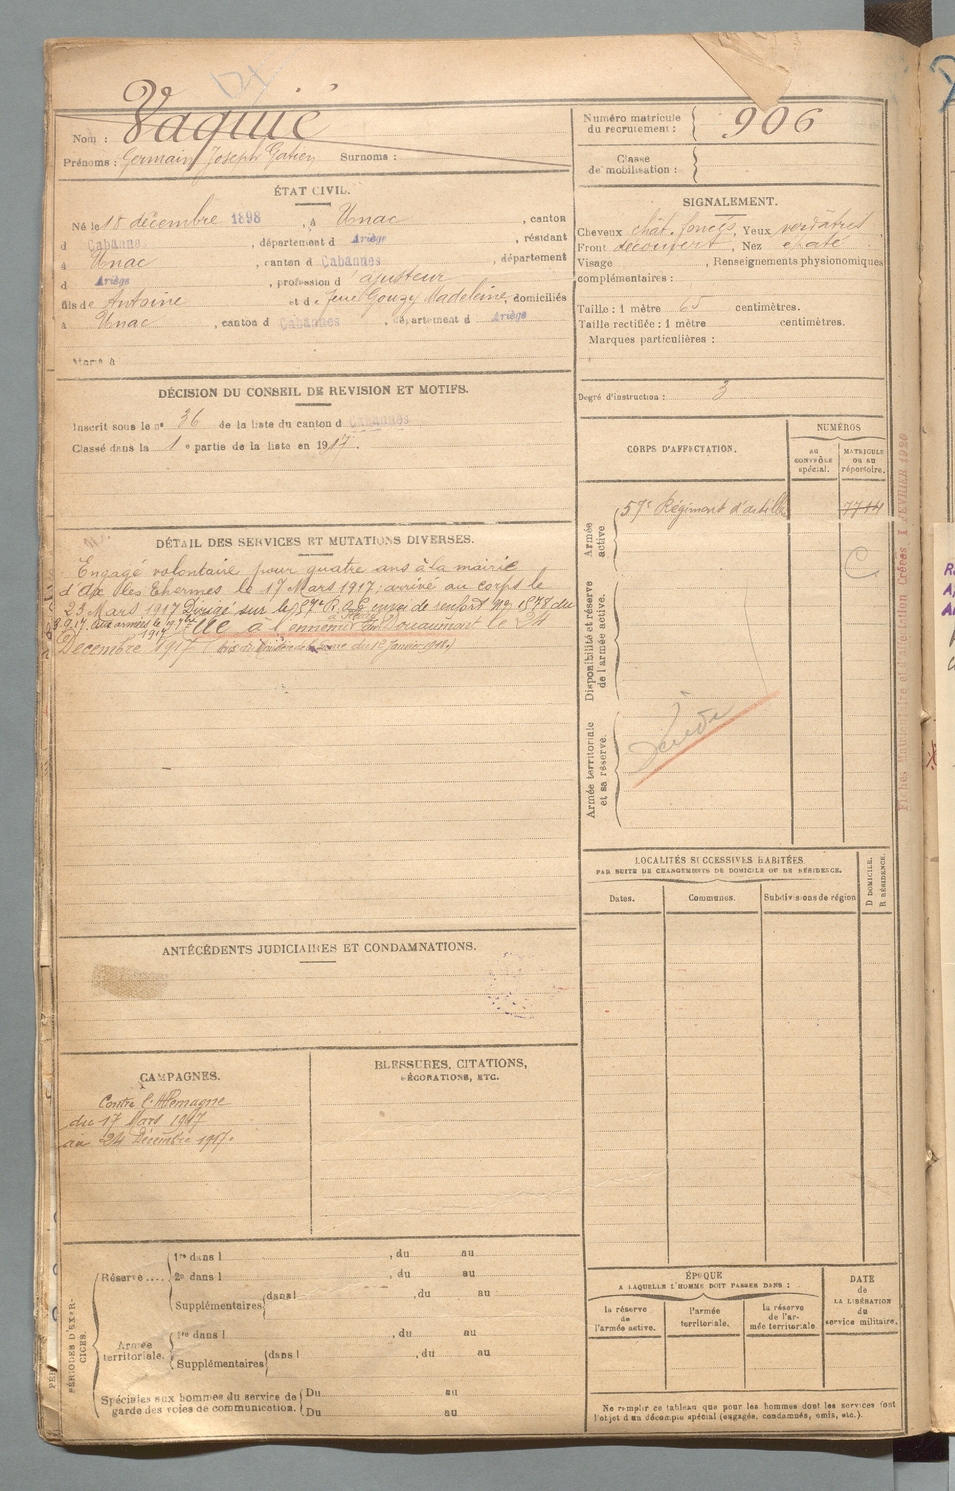 Nom : Vaquié
Prénoms : Germain Joseph Gatien Surnoms :
Numéro matricule
du recrutement : 906
Classe
de mobilisation :
ÉTAT CIVIL.
Né le 18 décembre 1898, à Unac, canton
d Cabanne, département d Ariège, résidant
à Unac, canton d Cabannes, département
d Ariège, profession d'ajusteur
fils de Antoine et de feue Gouzy Madeleine, domiciliés
à Unac, canton d Cabannes, département d Ariège
Marié à
SIGNALEMENT.
Cheveux chât. foncés, Yeux verdâtres
Front découvert, Nez épaté
Visage , Renseignements physionomiques
complémentaires :
Taille : 1 mètre 65 centimètres.
Taille rectifiée : 1 mètre centimètres.
Marques particulières :
Degré d'instruction : 3
DÉCISION DU CONSEIL DE REVISION ET MOTIFS.
Inscrit sous le nº 36 de la liste du canton d Cabannes
Classé dans la 1e partie de la liste en 1917.
DÉTAIL DES SERVICES ET MUTATIONS DIVERSES.
Engagé volontaire pour quatre ans à la mairie
d'Ax les Thermes le 17 Mars 1917, arrivé au corps le
23 Mars 1917 Dirigé sur le 57e R.A.C. envoi de renfort nº 1578 du
aux armées le
1917 Tué à l'ennemi Douaumont le 24
Décembre 1917 (avis du du 12 Janvier 1918)
CORPS D'AFFECTATION.
NUMÉROS
AU CONTRÔLE spécial.
MATRICULE OU AU répertoire.
Armée active.
57e Régiment d'artillie 7714
C
Disponibilité et réserve de l'armée active.
Armée territoriale et sa réserve.
Fiches 1 FEVRIER 1920
LOCALITÉS SUCCESSIVES HABITÉES
PAR SUITE DE CHANGEMENTS DE DOMICILE OU DE RÉSIDENCE.
Dates. Communes. Subdivisions de région
D DOMICILE.
R RÉSIDENCE.
ANTÉCÉDENTS JUDICIAIRES ET CONDAMNATIONS.
CAMPAGNES.
Contre l'Allemagne
du 17 Mars 1917
au 24 Décembre 1917.
BLESSURES, CITATIONS,
DÉCORATIONS, ETC.
PÉRIODES D'EXERCICES.
Réserve ....
1re dans l , du au
2e dans l , du au
Supplémentaires dans l , du au
Armée territoriale.
1re dans l , du au
Supplémentaires dans l , du au
Spéciales aux hommes du service de
garde des voies de communication.
Du au
Du au
ÉPOQUE
A LAQUELLE L'HOMME DOIT PASSER DANS :
la réserve de l'armée active.
l'armée territoriale.
la réserve de l'armée territoriale
DATE de LA LIBÉRATION du service militaire.
Ne remplir ce tableau que pour les hommes dont les services font
l'objet d'un décompte spécial (engagés, condamnés, omis, etc.).